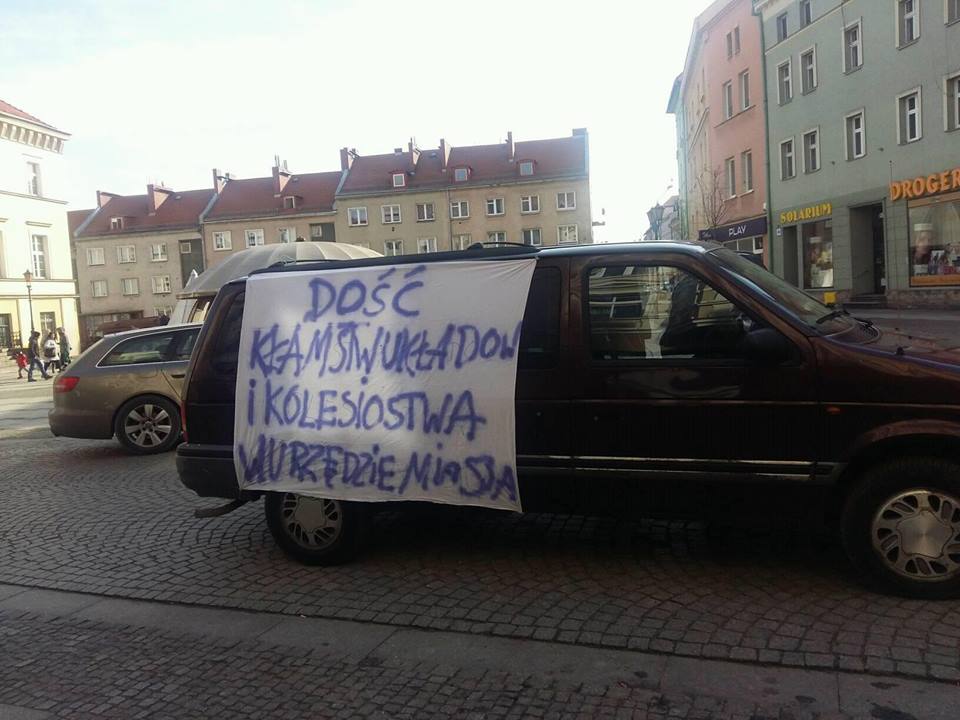 DOŚĆ
KŁAMSTW UKŁADÓW
I KOLESIOSTWA
W URZĘDZIE MIASTA
PLAY
SOLARIUM
DROGER